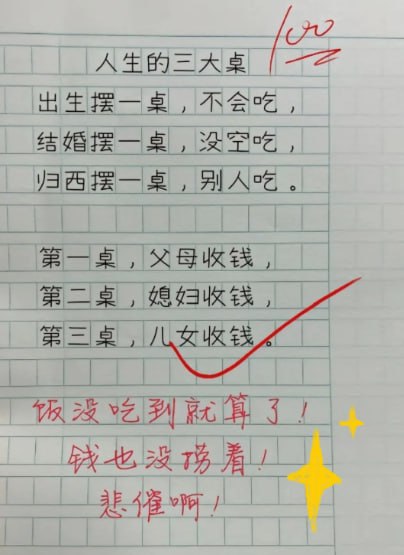 100
人生的三大桌
出生摆一桌，不会吃，
结婚摆一桌，没空吃，
归西摆一桌，别人吃。
第一桌，父母收钱，
第二桌，媳妇收钱，
第三桌，儿女收钱。
饭没吃到就算了！
钱也没捞着！
悲催啊！